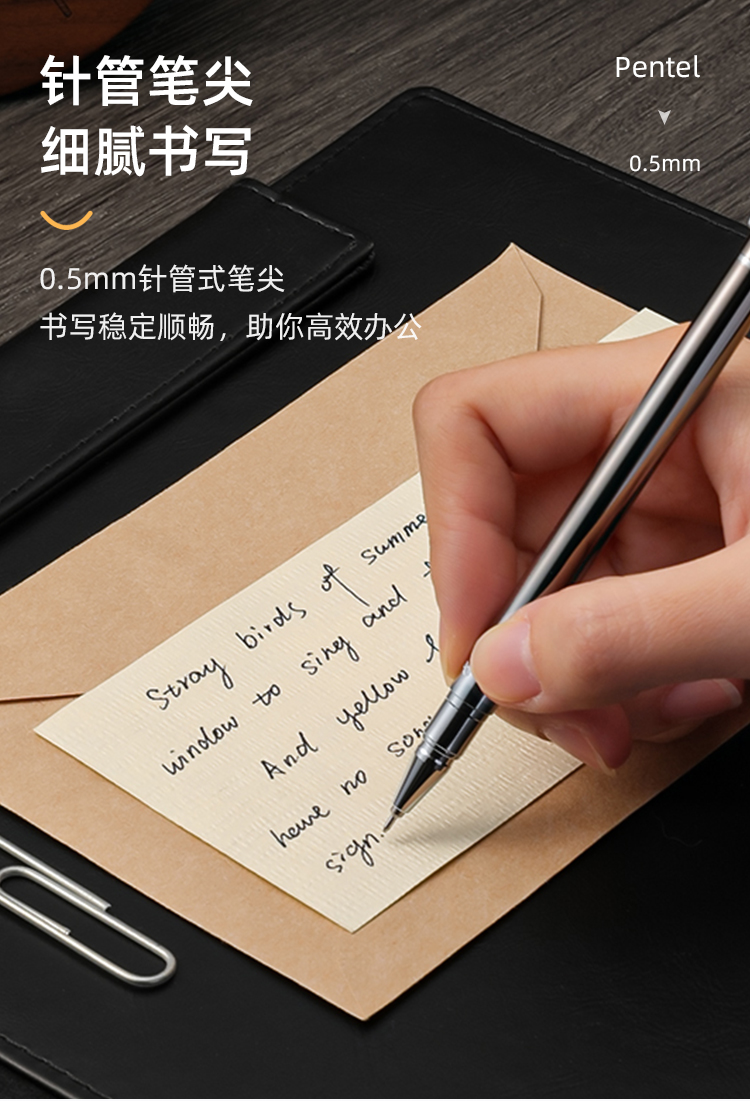 针管笔尖
细腻书写
0.5mm针管式笔尖
书写稳定顺畅，助你高效办公
Pentel
0.5mm
Stray birds of summe
window to sing and
And yellow l
have no
sign.